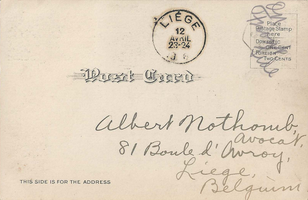 LIÉGE
12
AVRIL
23-24
Place
Postage Stamp
here
Domestic One Cent
Foreign
Two Cents
Post Card
Albert Nothomb,
Avocat,
81 Boule d' Avroy,
Liege,
Belgium
THIS SIDE IS FOR THE ADDRESS